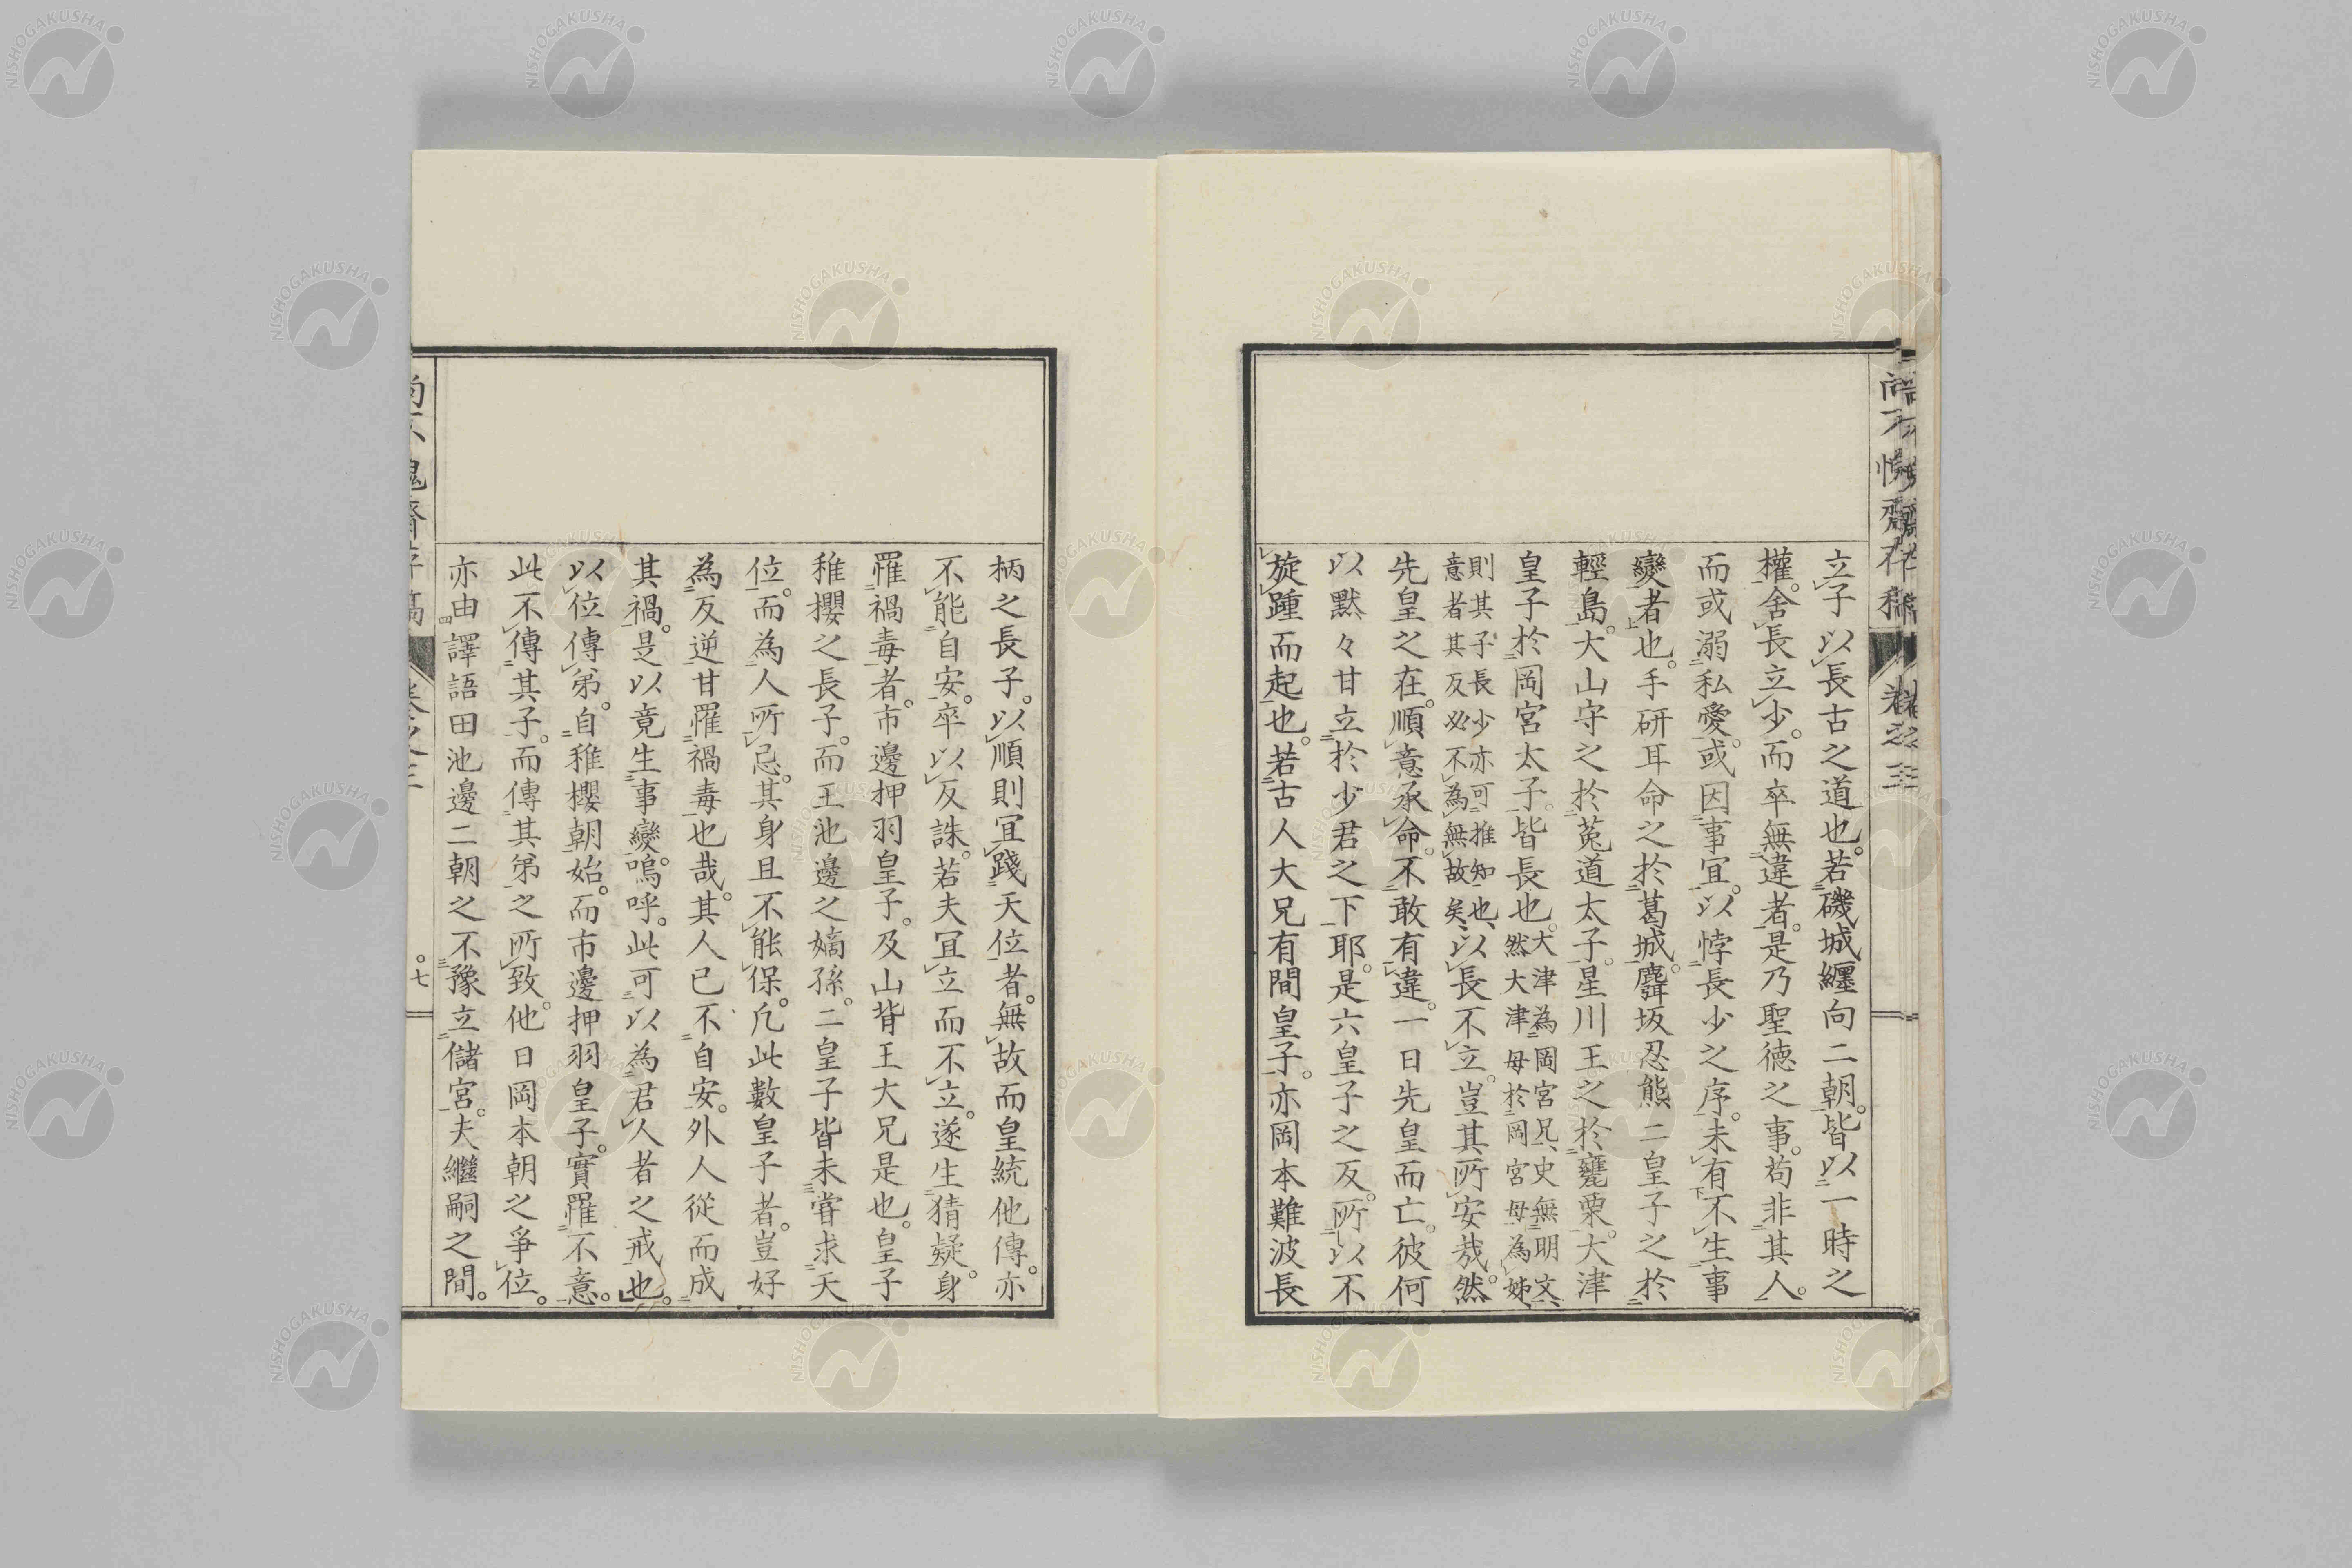 立子以長古之道也。若磯城纏向二朝。皆以一時之
權。舍長立少。而卒無違者。是乃聖德之事。苟非其人。
而或溺私愛。或因事宜。以悖長少之序。未有不生事
變者也。手研耳命之於葛城。麛坂忍熊二皇子之於
輕島。大山守之於菟道太子。星川王之於甕栗。大津
皇子於岡宮太子。皆長也。大津為岡宮兄、史無明文、然大津母於岡宮母為姊、
則其子長少亦可推知也、意者其反必不為無故矣、以長不立。豈其所安哉。然
先皇之在。順意承命。不敢有違。一日先皇而亡。彼何
以默々甘立於少君之下耶。是六皇子之反。所以不
旋踵而起也。若古人大兄有間皇子。亦岡本難波長
柄之長子。以順則宜踐天位者。無故而皇統他傳。亦
不能自安。卒以反誅。若夫宜立而不立。遂生猜疑。身
罹禍毒者。市邊押羽皇子。及山背王大兄是也。皇子
稚櫻之長子。而王池邊之嫡孫。二皇子皆未嘗求天
位。而為人所忌。其身且不能保。凡此數皇子者。豈好
為反逆甘罹禍毒也哉。其人已不自安。外人從而成
其禍。是以竟生事變。嗚呼。此可以為君人者之戒也。
以位傳弟。自稚櫻朝始。而市邊押羽皇子。實罹不意。
此不傳其子。而傳其弟之所致。他日岡本朝之爭位。
亦由譯語田池邊二朝之不豫立儲宮。夫繼嗣之間。
卷之三
七
NISHOGAKUSHA